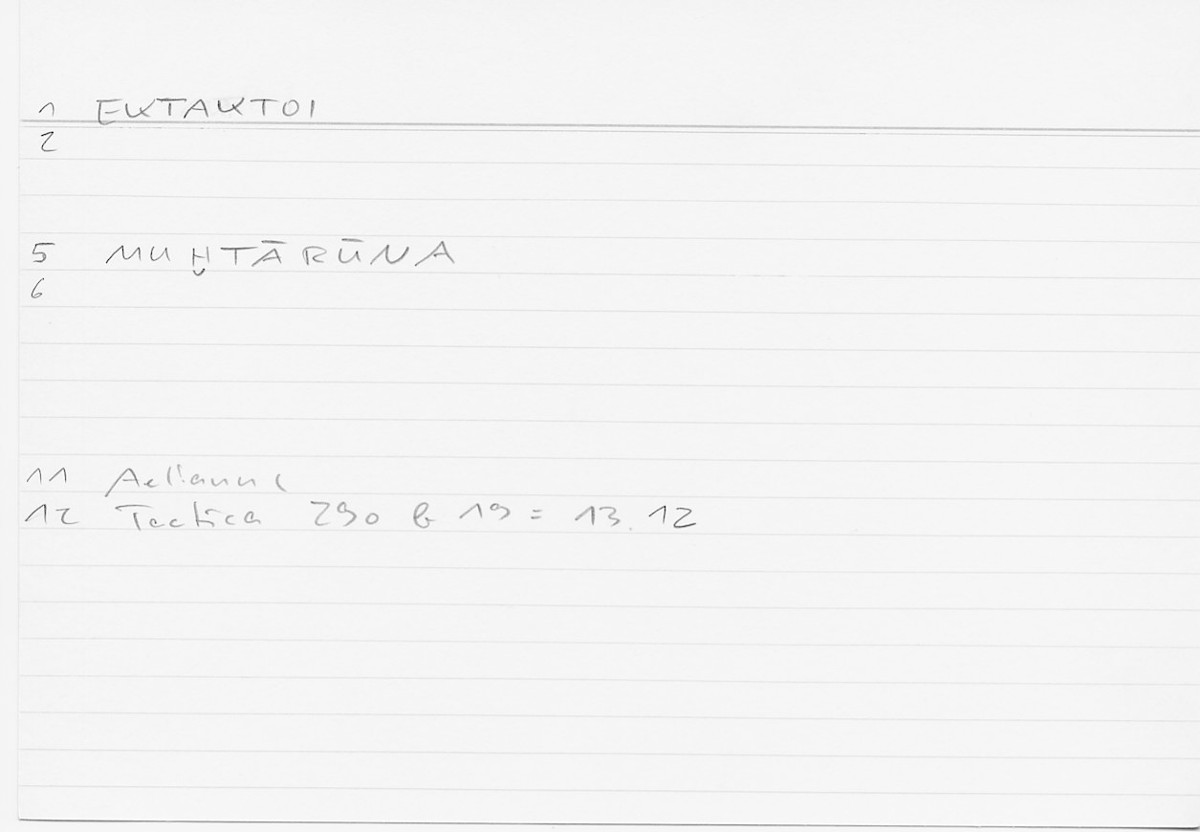 1 ΕΚΤΑΚΤΟΙ
2
5 MUḪTĀRŪNA
6
11 Aelianus
12 Tactica 290 b 19 = 13.12